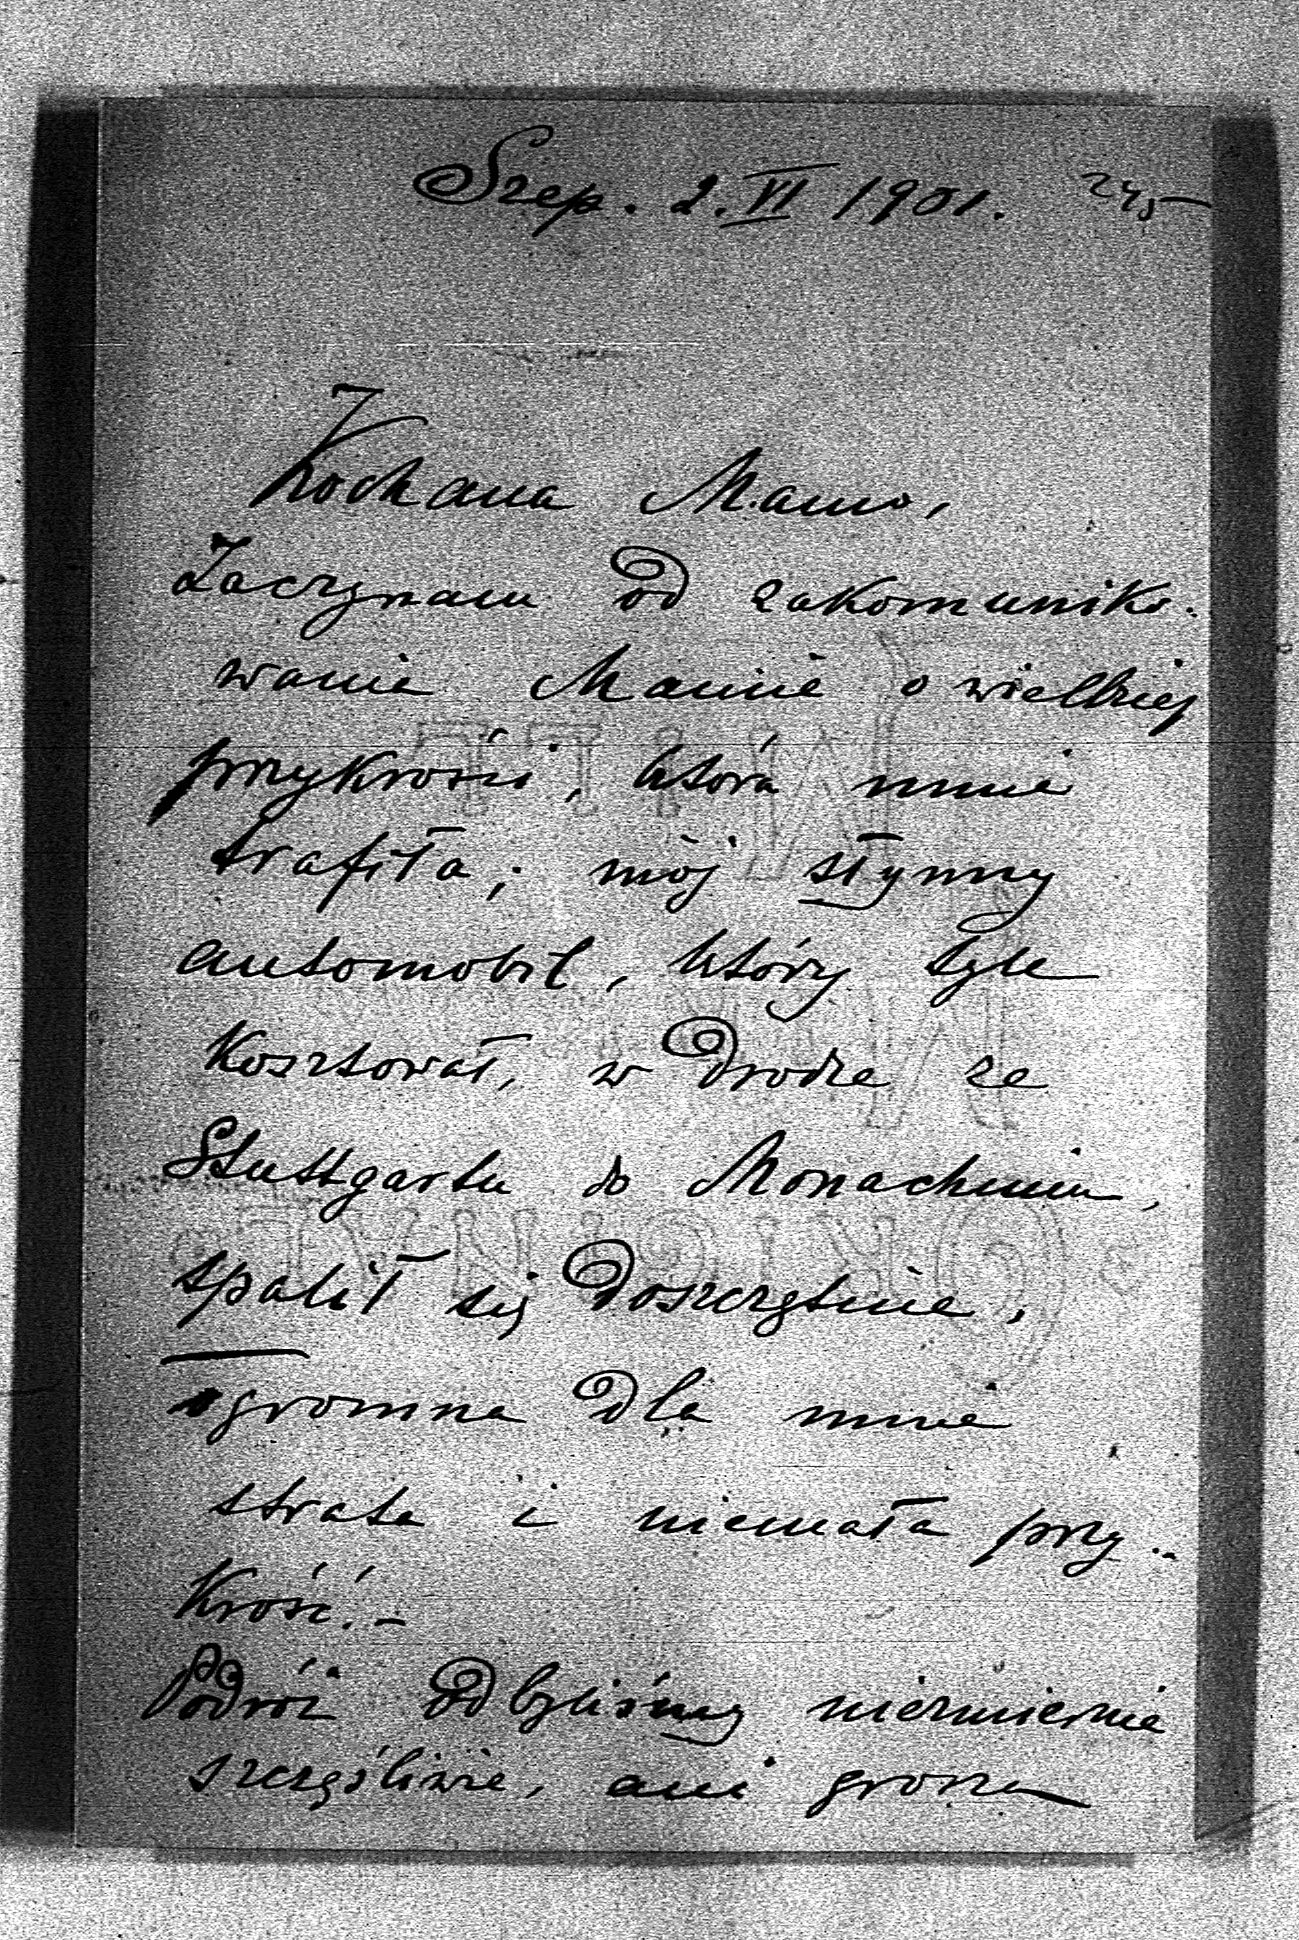 Szep. 2. VI 1901.
Kochana Mamo,
Zaczynam od zakomuniko-
wania Mamie o wielkiej
przykrości, która mnie
trafiła; mój słynny
automobil, który tyle
kosztował, w drodze ze
Stuttgartu do Monachium,
spalił się doszczętnie,
ogromna dla mnie
strata i niemała przy-
krość.-
Podróż odbyliśmy niezmiernie
szczęśliwie, ani grosza